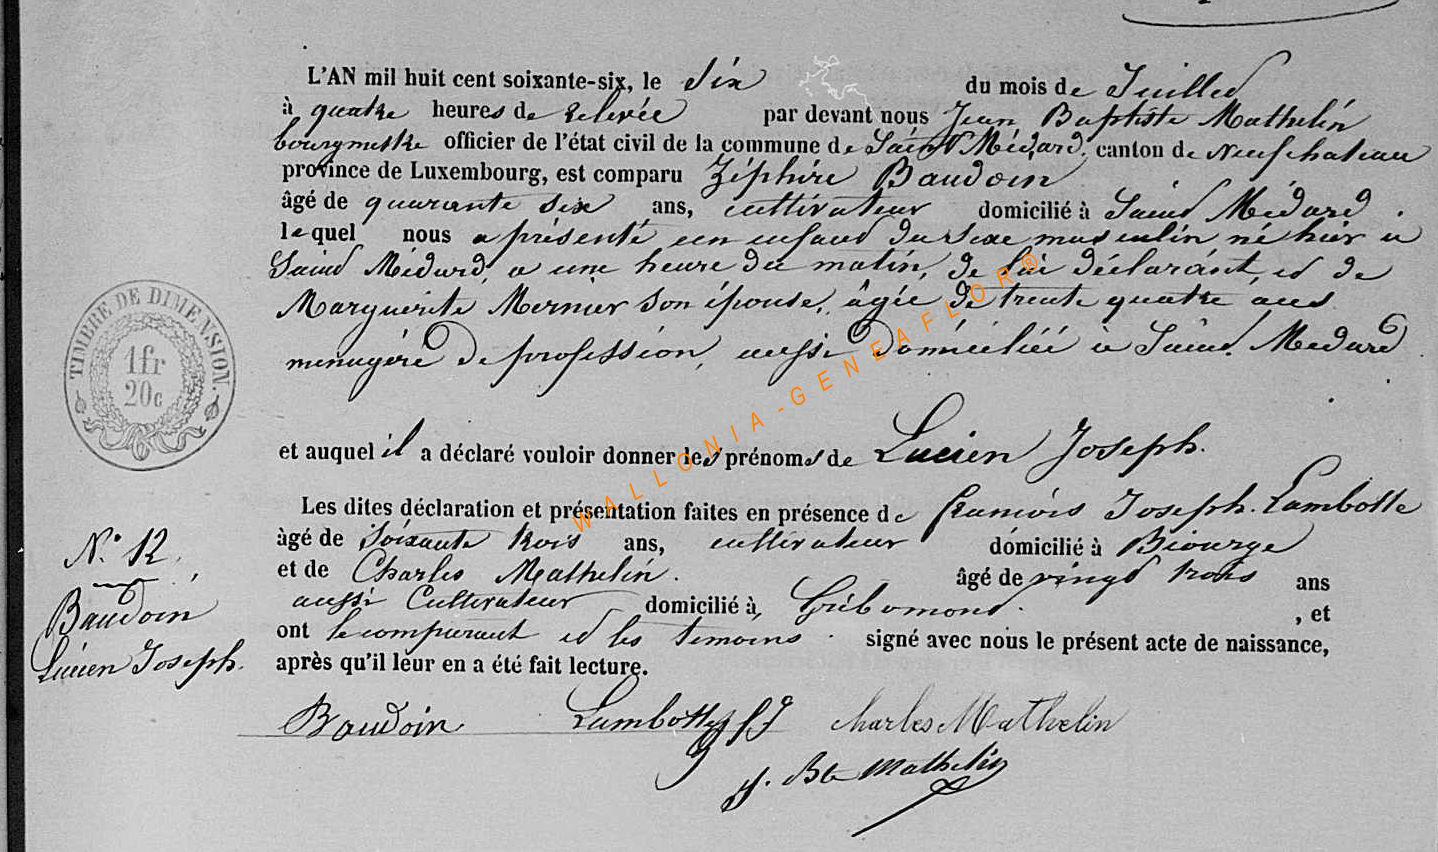 L'AN mil huit cent soixante-six, le Six du mois de Juillet
à quatre heures de relevée par devant nous Jean Baptiste Mathelin
bourgmestre officier de l'état civil de la commune de Saint Médard, canton de Neufchateau
province de Luxembourg, est comparu Zéphire Baudoin
âgé de quarante six ans, cultivateur domicilié à Saint Médard.
lequel nous a présenté un enfant du sexe masculin né hier à
Saint Médard, a une heure du matin, de lui déclarant, et de
Marguerite Mernier son épouse, âgée de trente quatre ans
menagére de profession, aussi domiciliée à Saint Medard
et auquel il a déclaré vouloir donner les prénoms de Lucien Joseph.
Les dites déclaration et présentation faites en présence de françois Joseph Lambotte
âgé de Soixante trois ans, cultivateur domicilié à Biourge
et de Charles Mathelin. âgé de vingt trois ans
aussi Cultivateur domicilié à, Gribomont. , et
ont le comparant et les temoins. signé avec nous le présent acte de naissance,
après qu'il leur en a été fait lecture.
Baudoin Lambotte fJ Charles Mathelin
J. Bte Mathelin
N.° 12.
Baudoin
Lucien Joseph.
TIMBRE DE DIMENSION.
1fr
20c
WALLONIA-GENEAFLOR®